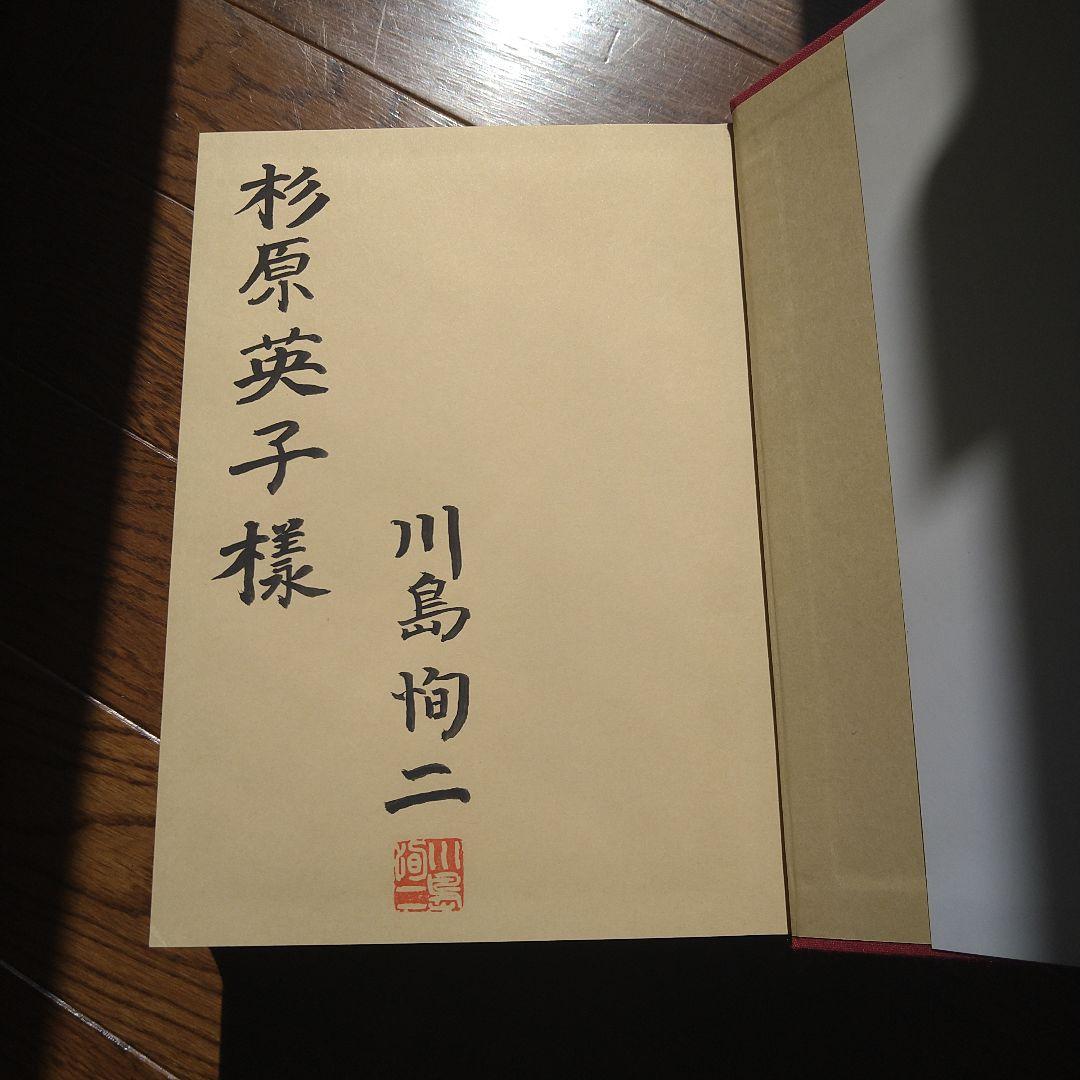 川島恂二
川島
恂二
杉原英子樣